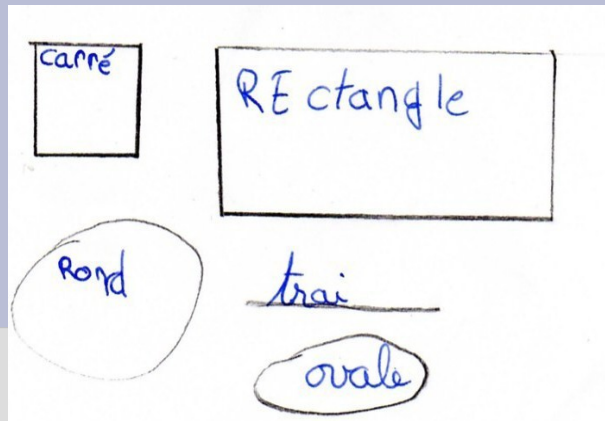 carré
REctangle
Rond
trai
ovale